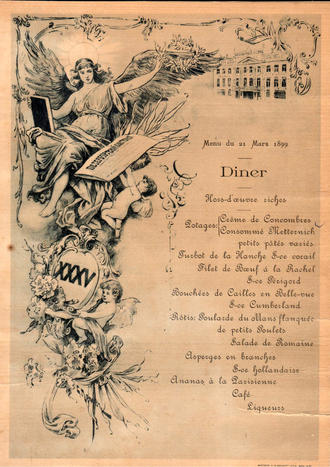 Menu du 21 Mars 1899
Diner
Hors-d'œuvre riches
Potages: Crème de Concombres
Consommé Metternich
petits pâtés variés
Turbot de la Manche S-ce corail
Filet de Bœuf à la Rachel
S-ce Périgord
Bouchées de Cailles en Belle-vue
S-ce Cumberland
Rôtis: Poularde du Mans flanquée
de petits Poulets
Salade de Romaine
Asperges en branches
S-ce hollandaise
Ananas à la Parisienne
Café
Liqueurs
XXXV